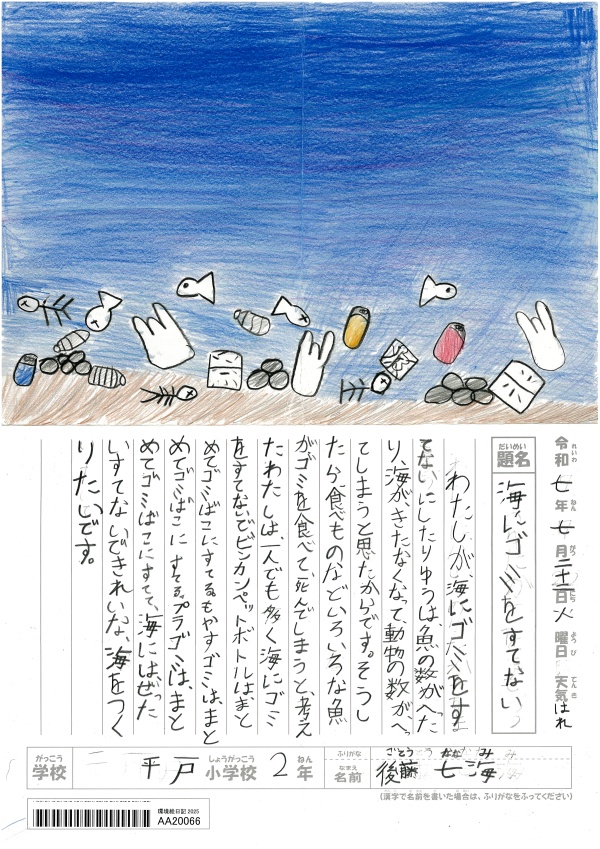 令和七年七月二十二日火曜日 天気はれ
れいわ ねん がつ にち ようび てんき
だいめい
題名 海にゴミをすてない
わたしが海にゴミをす
てないにしたりゆうは、魚の数がへた
り、海が、きたなくなて、動物の数が、へっ
てしまうと思たからです。そうし
たら食べものなどいろいろな魚
がゴミを食べて、死んでしまうと、考え
たわたしは、一人でも多く海にゴミ
をすてないでビンカンペットボトルは、まと
めてゴミばこにすてるもやすゴミは、まと
めてゴミばこにすてるプラゴミは、まと
めてゴミばこにすてて、海にはぜった
いすてないできれいな、海をつく
りたいです。
がっこう しょうがっこう ねん
学校 平戸小学校 2年
ふりがな ごとう ななみ
なまえ
名前 後藤 七海
(漢字で名前を書いた場合は、ふりがなをふってください)
環境絵日記 2025
AA20066